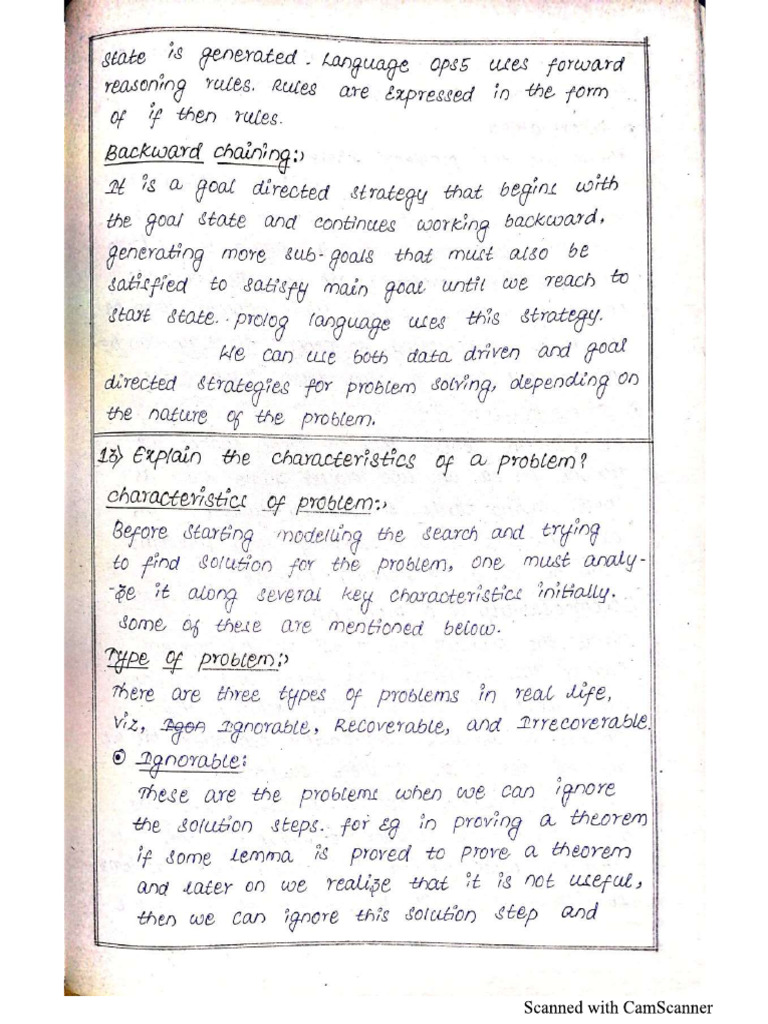 state is generated. Language OPS5 uses forward
reasoning rules. Rules are Expressed in the form
of if then rules.
Backward chaining:>
It is a goal directed strategy that begins with
the goal state and continues working backward,
generating more sub-goals that must also be
satisfied to satisfy main goal until we reach to
start state.. prolog language uses this strategy.
We can use both data driven and goal
directed strategies for problem solving, depending on
the nature of the problem.
13) Explain the characteristics of a problem?
characteristics of problem:>
Before starting modelling the search and trying
to find solution for the problem, one must analy-
-ze it along several key characteristics initially.
Some of these are mentioned below.
Type of problem:>
There are three types of problems in real life,
viz, Igon Ignorable, Recoverable, and Irrecoverable.
Ignorable:
These are the problems when we can ignore
the solution steps. for Eg in proving a theorem
if some lemma is proved to prove a theorem
and later on we realize that it is not useful,
then we can ignore this solution step and
Scanned with CamScanner